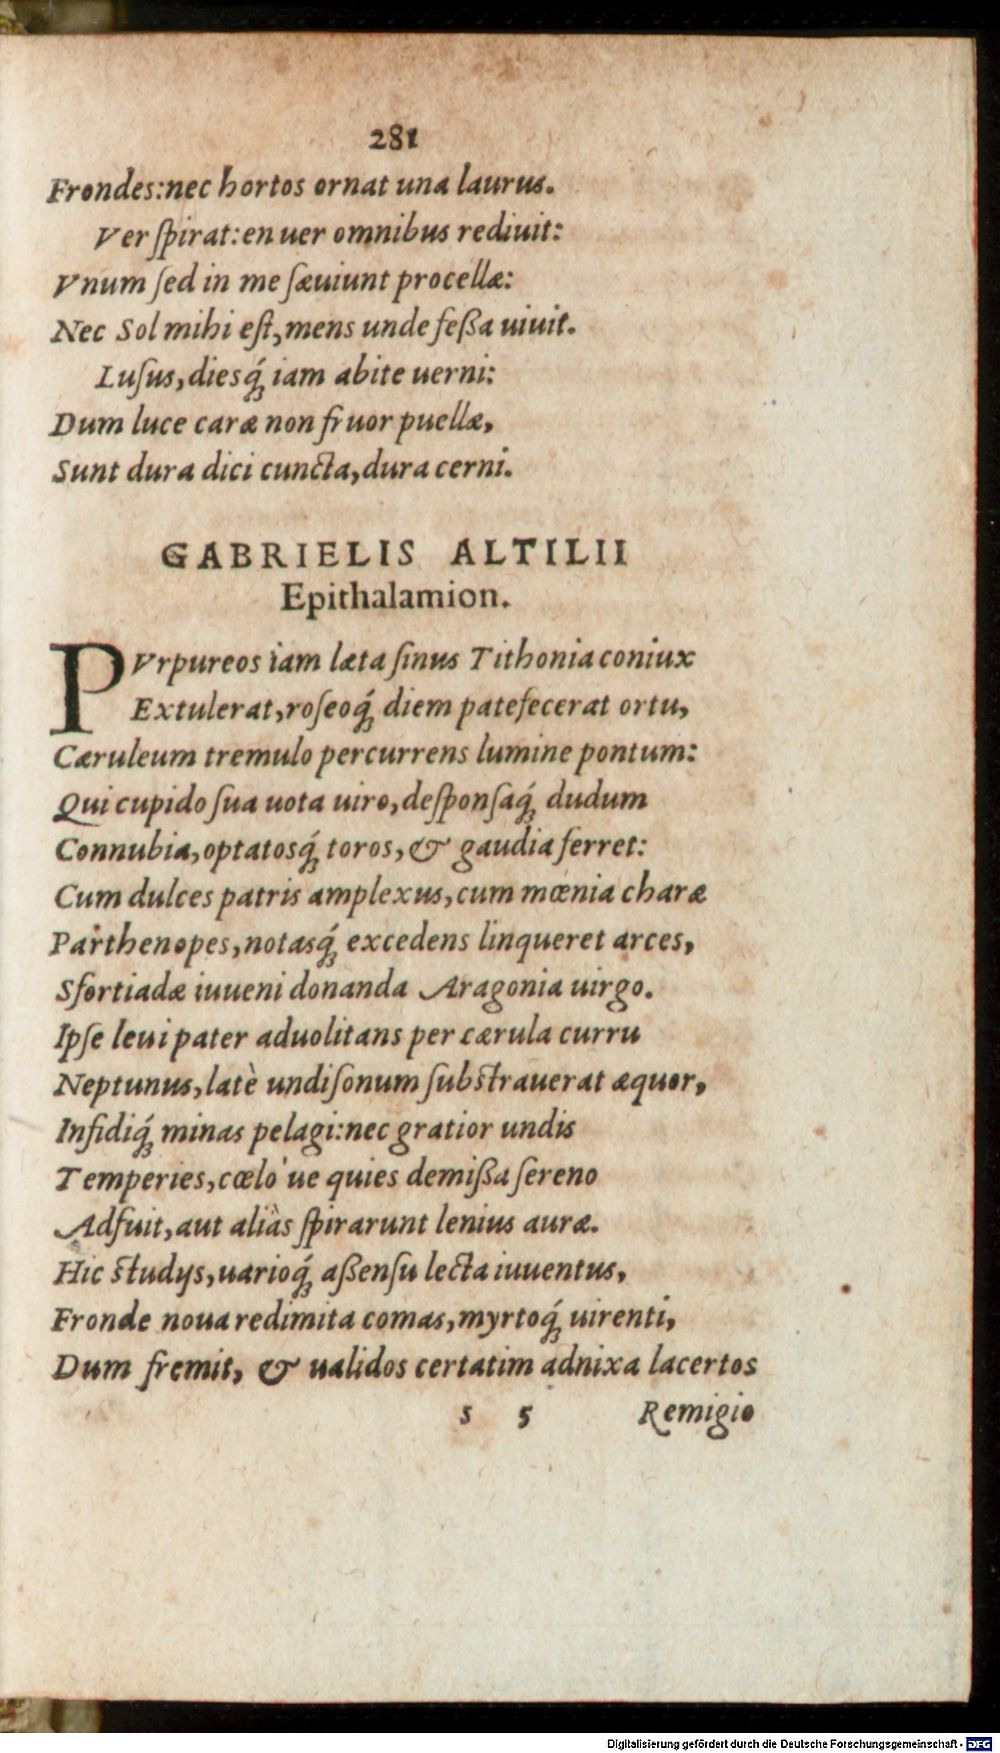 281
Frondes:nec hortos ornat una laurus.
Ver ſpirat:en uer omnibus rediuit:
Vnum ſed in me ſæuiunt procellæ:
Nec Sol mihi eſt,mens unde feßa uiuit.
Luſus,diesq́; iam abite uerni:
Dum luce caræ non fruor puellæ,
Sunt dura dici cuncta,dura cerni.
GABRIELIS ALTILII
Epithalamion.
PVrpureos iam læta ſinus Tithonia coniux
Extulerat,roſeoq́; diem patefecerat ortu,
Cæruleum tremulo percurrens lumine pontum:
Qui cupido ſua uota uiro,deſponſaq́; dudum
Connubia,optatosq́; toros,& gaudia ferret:
Cum dulces patris amplexus,cum mœnia charæ
Parthenopes,notasq́; excedens linqueret arces,
Sfortiadæ iuueni donanda Aragonia uirgo.
Ipſe leui pater aduolitans per cærula curru
Neptunus,latè undiſonum ſubſtrauerat æquor,
Infidiq́; minas pelagi:nec gratior undis
Temperies,cœlo ́ue quies demißa ſereno
Adfuit,aut aliàs ſpirarunt lenius auræ.
Hic ſtudijs,uarioq́; aßenſu lecta iuuentus,
Fronde noua redimita comas,myrtoq́; uirenti,
Dum fremit, & ualidos certatim adnixa lacertos
s 5 Remigio
Digitalisierung gefördert durch die Deutsche Forschungsgemeinschaft - DFG